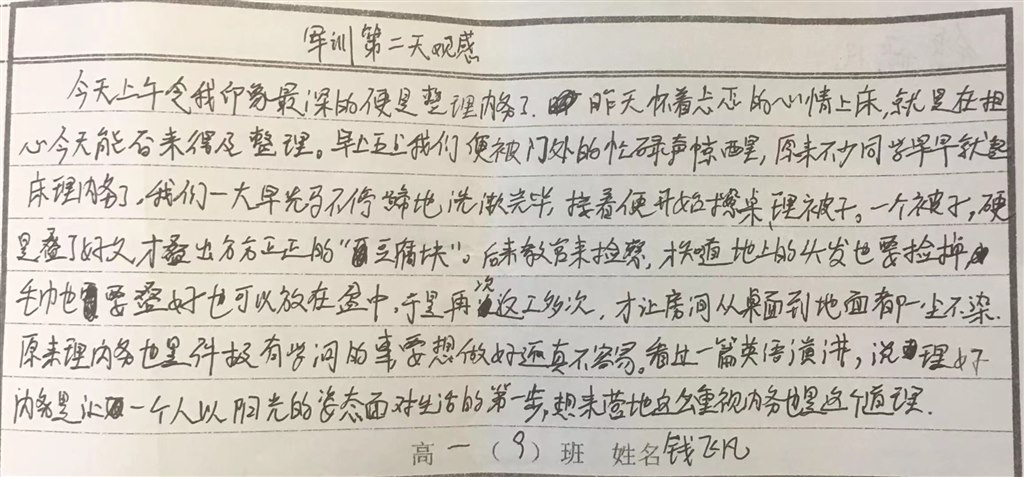 军训第二天观感
今天上午令我印象最深的便是整理内务了. 昨天怀着忐忑的心情上床,就是在担
心今天能否来得及整理。早上五点我们便被门外的忙碌声惊醒,原来不少同学早早就起
床理内务了,我们一大早先马不停蹄地洗漱完毕,接着便开始擦桌,理被子。一个被子,硬
是叠了好久,才叠出方方正正的“豆腐块”。后来教官来检察,才知道地上的头发也要捡掉,
毛巾也要叠好也可以放在盆中,于是再次返工多次,才让房间从桌面到地面都一尘不染.
原来理内务也是件极有学问的事,要想做好还真不容易。看过一篇英语演讲,说理好
内务是让一个人以阳光的姿态面对生活的第一步,想来营地这么重视内务也是这个道理.
高一(9)班 姓名钱飞凡